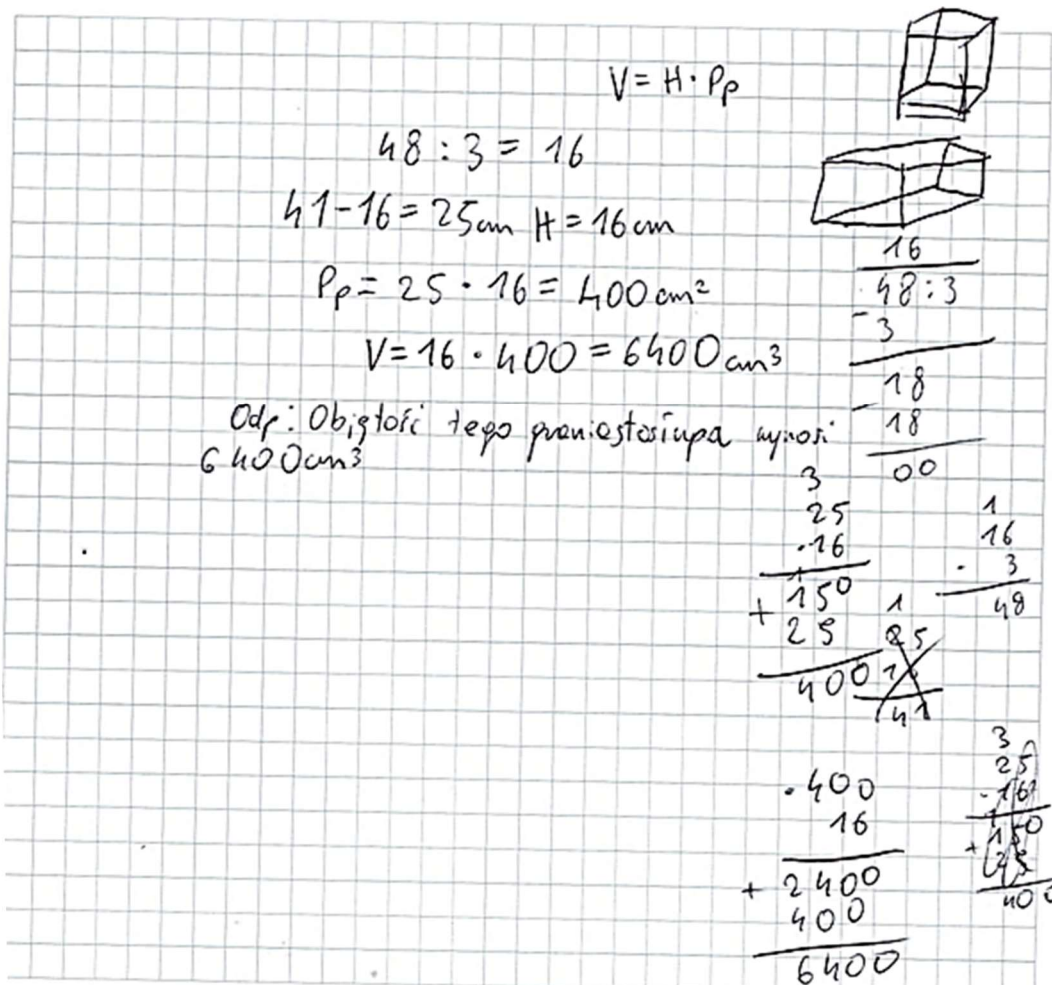 V = H · Pp
48 : 3 = 16
41-16 = 25cm H = 16cm
Pp = 25 · 16 = 400 cm²
V = 16 · 400 = 6400 cm³
Odp: Objętość tego graniastosłupa wynosi
6400cm³
16
48:3
- 3
18
- 18
00
3
25
·16
1
150
+ 25
400
1
16
· 3
48
1
25
16
41
·400
16
2400
+ 400
6400
3
25
·16
1
150
+ 25
400